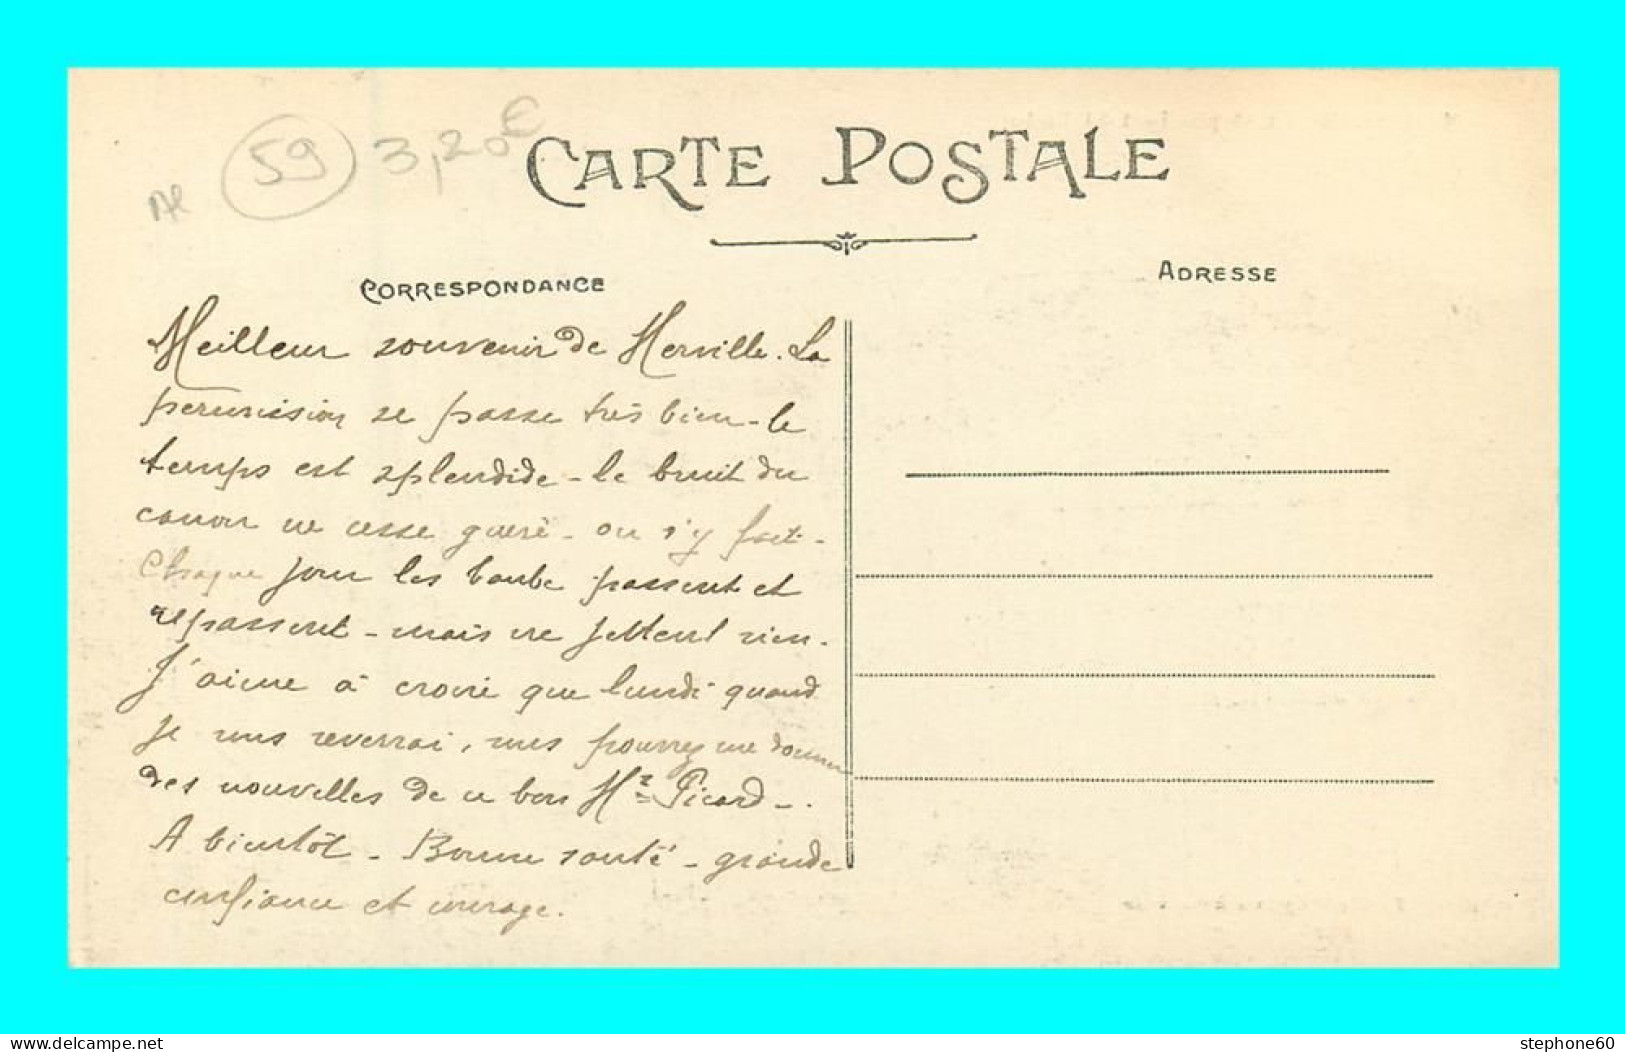 59 3,20€
CARTE POSTALE
CORRESPONDANCE
ADRESSE
Meilleur souvenir de Merville. La
permission se passe très bien - le
temps est splendide - le bruit du
canon ne cesse guère - on s'y fait -
Chaque jour les taube passent et
repassent - mais ne jettent rien.
J'aime à croire que lundi quand
je vous reverrai, vous pourrez me donner
des nouvelles de ce bon Mr Picard - .
A bientôt - Bonne santé - grande
confiance et courage.
www.delcampe.net
stephone60